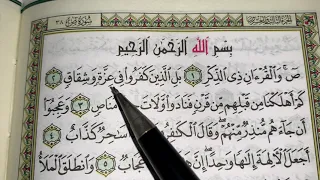 سُورَةُ صٓ ٣٨
بِسْمِ اللَّهِ الرَّحْمَٰنِ الرَّحِيمِ
صٓ ۚ وَالْقُرْءَانِ ذِي الذِّكْرِ ١ بَلِ الَّذِينَ كَفَرُوا فِي عِزَّةٍ وَشِقَاقٍ ٢
كَمْ أَهْلَكْنَا مِن قَبْلِهِم مِّن قَرْنٍ فَنَادَوا وَّلَاتَ مَنَاصٍ ٣ وَعَجِبُوا
أَن جَاءَهُم مُّنذِرٌ مِّنْهُمْ ۖ وَقَالَ الْكَافِرُونَ سَاحِرٌ كَذَّابٌ ٤
أَجَعَلَ الْآلِهَةَ إِلَٰهًا وَاحِدًا ۖ إِنَّ عُجَابٌ ٥ وَانطَلَقَ الْمَلَأُ